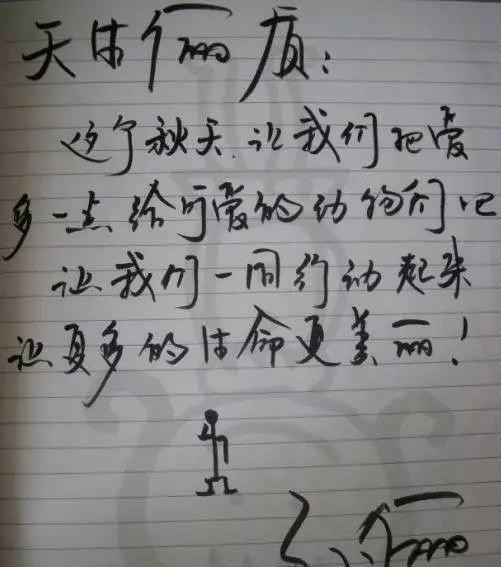 天生俪质:
这个秋天,让我们把爱
多一点给可爱的动物们吧
让我们一同行动起来
让更多的生命更美丽!